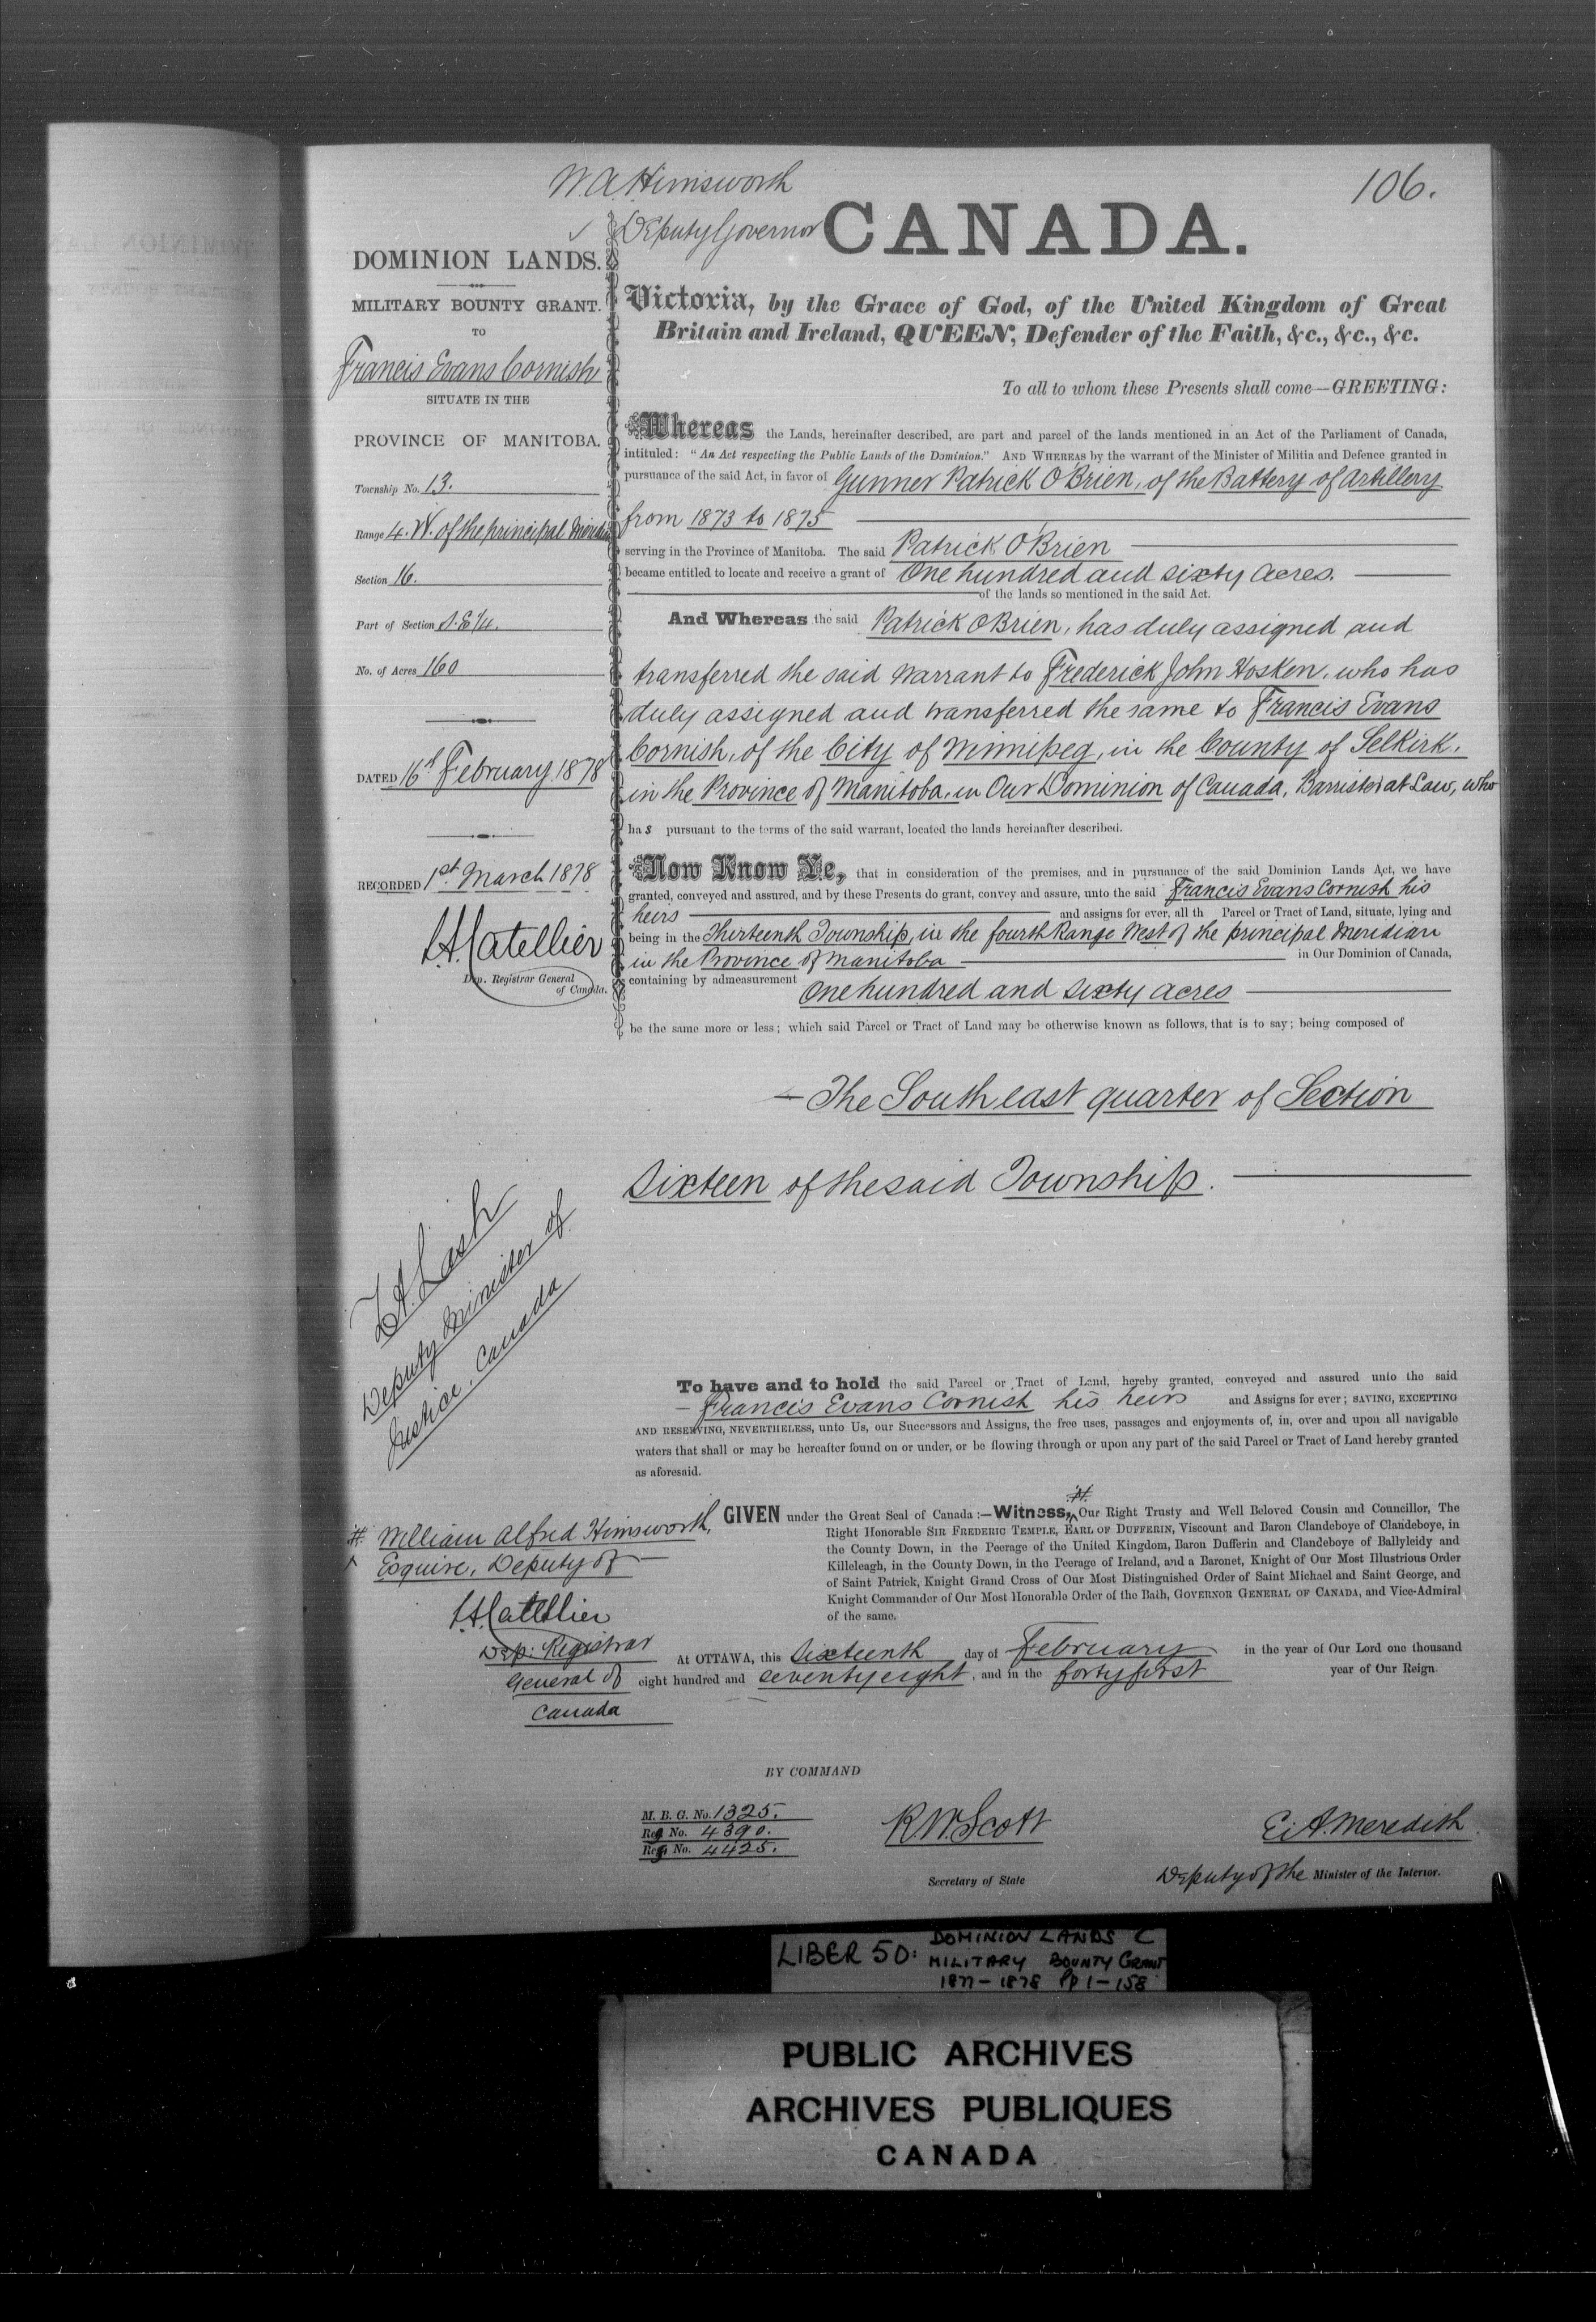 W. A. Himsworth
Deputy Governor
106.
CANADA.
DOMINION LANDS.
MILITARY BOUNTY GRANT.
TO
Francis Evans Cornish
SITUATE IN THE
PROVINCE OF MANITOBA.
Township No. 13.
Range 4. W. of the principal Meridian
Section 16.
Part of Section S.E 1/4.
No. of Acres 160
DATED 16th February 1878
RECORDED 1st March 1878
L.A. Catellier
Dep. Registrar General
of Canada.
Victoria, by the Grace of God, of the United Kingdom of Great
Britain and Ireland, QUEEN, Defender of the Faith, &c., &c., &c.
To all to whom these Presents shall come—GREETING:
Whereas the Lands, hereinafter described, are part and parcel of the lands mentioned in an Act of the Parliament of Canada,
intituled: "An Act respecting the Public Lands of the Dominion." AND WHEREAS by the warrant of the Minister of Militia and Defence granted in
pursuance of the said Act, in favor of Gunner Patrick O'Brien, of the Battery of Artillery
from 1873 to 1875
serving in the Province of Manitoba. The said Patrick O'Brien
became entitled to locate and receive a grant of One hundred and sixty acres.
of the lands so mentioned in the said Act.
And Whereas the said Patrick O'Brien, has duly assigned and
transferred the said Warrant to Frederick John Hosken, who has
duly assigned and transferred the same to Francis Evans
Cornish, of the City of Winnipeg, in the County of Selkirk,
in the Province of Manitoba, in Our Dominion of Canada, Barrister at Law, who
has pursuant to the terms of the said warrant, located the lands hereinafter described.
Now Know Ye, that in consideration of the premises, and in pursuance of the said Dominion Lands Act, we have
granted, conveyed and assured, and by these Presents do grant, convey and assure, unto the said Francis Evans Cornish his
heirs and assigns for ever, all th Parcel or Tract of Land, situate, lying and
being in the Thirteenth Township, in the fourth Range West of the principal Meridian
in the Province of Manitoba in Our Dominion of Canada,
containing by admeasurement One hundred and sixty acres
be the same more or less; which said Parcel or Tract of Land may be otherwise known as follows, that is to say; being composed of
— The South east quarter of Section
Sixteen of the said Township.
Z. A. Lash
Deputy Minister of
Justice, Canada
To have and to hold the said Parcel or Tract of Land, hereby granted, conveyed and assured unto the said
— Francis Evans Cornish his heirs and Assigns for ever; SAVING, EXCEPTING
AND RESERVING, NEVERTHELESS, unto Us, our Successors and Assigns, the free uses, passages and enjoyments of, in, over and upon all navigable
waters that shall or may be hereafter found on or under, or be flowing through or upon any part of the said Parcel or Tract of Land hereby granted
as aforesaid.
# William Alfred Himsworth,
Esquire, Deputy of
L.A. Catellier
Dep. Registrar
General of
Canada
GIVEN under the Great Seal of Canada:—Witness, # Our Right Trusty and Well Beloved Cousin and Councillor, The
Right Honorable SIR FREDERIC TEMPLE, EARL OF DUFFERIN, Viscount and Baron Clandeboye of Clandeboye, in
the County Down, in the Peerage of the United Kingdom, Baron Dufferin and Clandeboye of Ballyleidy and
Killeleagh, in the County Down, in the Peerage of Ireland, and a Baronet, Knight of Our Most Illustrious Order
of Saint Patrick, Knight Grand Cross of Our Most Distinguished Order of Saint Michael and Saint George, and
Knight Commander of Our Most Honorable Order of the Bath, GOVERNOR GENERAL OF CANADA, and Vice-Admiral
of the same.
At OTTAWA, this Sixteenth day of February in the year of Our Lord one thousand
eight hundred and seventy eight, and in the forty first year of Our Reign.
BY COMMAND
M. B. G. No. 1325.
Reg No. 4390.
Reg No. 4425.
R. W. Scott
Secretary of State
E. A. Meredith
Deputy of the Minister of the Interior.
LIBER 50: DOMINION LANDS C
MILITARY BOUNTY GRANT
1877-1878 Pp 1-158
PUBLIC ARCHIVES
ARCHIVES PUBLIQUES
CANADA